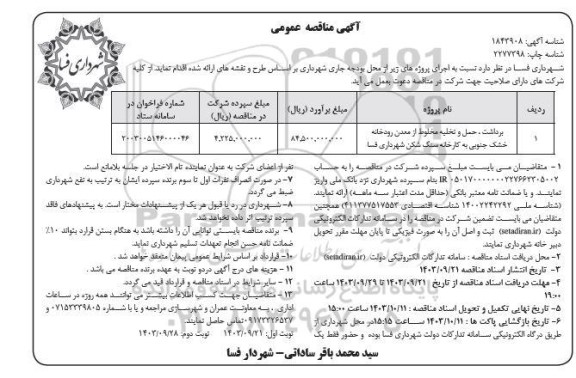 آگهی مناقصه عمومی
شناسه آگهی: ۱۸۴۳۹۰۸
شناسه چاپ: ۲۲۷۷۳۹۸
شهرداری فسا
شهرداری فسا در نظر دارد نسبت به اجرای پروژه های زیر از محل بودجه جاری شهرداری بر اساس طرح و نقشه های ارائه شده اقدام نماید. از کلیه
شرکت های دارای صلاحیت جهت شرکت در مناقصه دعوت بعمل می آید.
ردیف | نام پروژه | مبلغ برآورد (ریال) | مبلغ سپرده شرکت در مناقصه (ریال) | شماره فراخوان در سامانه ستاد
۱ | برداشت، حمل و تخلیه مخلوط از معدن رودخانه خشک جنوبی به کارخانه سنگ شکن شهرداری فسا | ۸۴,۵۰۰,۰۰۰,۰۰۰ | ۴,۲۲۵,۰۰۰,۰۰۰ | ۲۰۰۳۰۰۵۱۴۶۰۰۰۰۴۶
۱ - متقاضیان می بایست مبلغ سپرده شرکت در مناقصه را به حساب
بنام سپرده شهرداری نزد بانک ملی واریز
نمایند و یا ضمانت نامه معتبر بانکی (حداقل مدت اعتبار سه ماهه) ارائه نمایند.
(شناسه ملی ۱۴۰۰۲۲۴۲۲۹۲ شناسه اقتصادی ۴۱۱۳۷۷۵۱۷۵۵۳) همچنین
متقاضیان می بایست تضمین شرکت در مناقصه را در سامانه تدارکات الکترونیکی
دولت (setadiran.ir) ثبت و اصل آن را به صورت فیزیکی تا پایان مهلت مقرر تحویل
دبیر خانه شهرداری نمایند.
۲- محل دریافت اسناد مناقصه : سامانه تدارکات الکترونیکی دولت (setadiran.ir)
۳- تاریخ انتشار اسناد مناقصه ۱۴۰۳/۰۹/۲۱
۴- مهلت دریافت اسناد مناقصه از تاریخ ۱۴۰۳/۰۹/۲۱ تا ۱۴۰۳/۰۹/۲۹ ساعت
۱۹:۰۰
۵- تاریخ نهایی تکمیل و تحویل اسناد مناقصه : ۱۴۰۳/۱۰/۱۱ ساعت ۱۵:۰۰
۶- تاریخ بازگشایی پاکت ها : ۱۴۰۳/۱۰/۱۱ ساعت ۱۵:۱۵ در محل شهرداری از
طریق درگاه الکترونیکی سامانه تدارکات دولت شهرداری فسا بوده و حضور فقط یک
نفر از اعضای شرکت به عنوان نماینده تام الاختیار در جلسه بلامانع است.
۷- در صورت انصراف نفرات اول تا سوم برنده سپرده ایشان به ترتیب به نفع شهرداری
ضبط می گردد.
۸- شهرداری در رد یا قبول هر یک از پیشنهادات مختار است. به پیشنهادهای فاقد
سپرده ترتیب اثر داده نخواهد شد.
۹- برنده مناقصه بایستی توانایی آن را داشته باشد به هنگام بستن قرارداد بتواند ۱۰٪
ضمانت نامه حسن انجام تعهدات تسلیم شهرداری نماید.
۱۰- قرارداد بر اساس شرایط عمومی پیمان منعقد خواهد شد.
۱۱- هزینه های درج آگهی در دو نوبت به عهده برنده مناقصه می باشد.
۱۲- سایر شرایط در اسناد مناقصه و قرارداد قید می گردد.
۱۳- متقاضیان جهت کسب اطلاعات بیشتر می توانند همه روزه در ساعات
اداری، به معاونت عمران و شهرسازی مراجعه و یا با شماره ۰۷۱۵۳۳۳۹۸۰۵ و
تماس حاصل نمایند.
نوبت اول: ۱۴۰۳/۰۹/۲۱ نوبت دوم: ۱۴۰۳/۰۹/۲۸
سید محمد باقر ساداتی- شهردار فسا